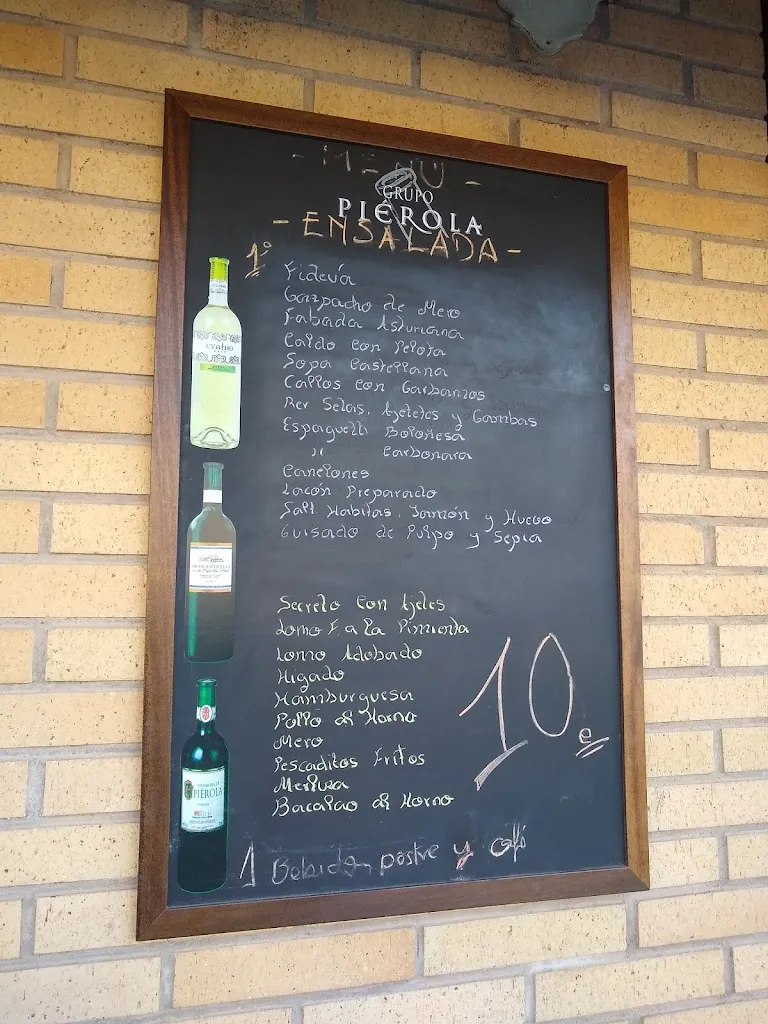 - MENÚ -
GRUPO
PIÉROLA
- ENSALADA -
1º
Fideuá
Gazpacho de Mero
Fabada Asturiana
Caldo con Pelota
Sopa Castellana
Callos con Garbanzos
Rev Setas, Ajetes y Gambas
Espaguetti Boloñesa
" Carbonara
Canelones
Lacón Preparado
Salt. Habitas, Jamón y Huevo
Guisado de Pulpo y Sepia
Secreto Con Ajetes
Lomo F. a la Pimienta
Lomo Adobado
Higado
Hamburguesa
Pollo al Horno
Mero
Pescaditos Fritos
Merluza
Bacalao al Horno
10 e
1 Bebida, postre y café
PIÉROLA